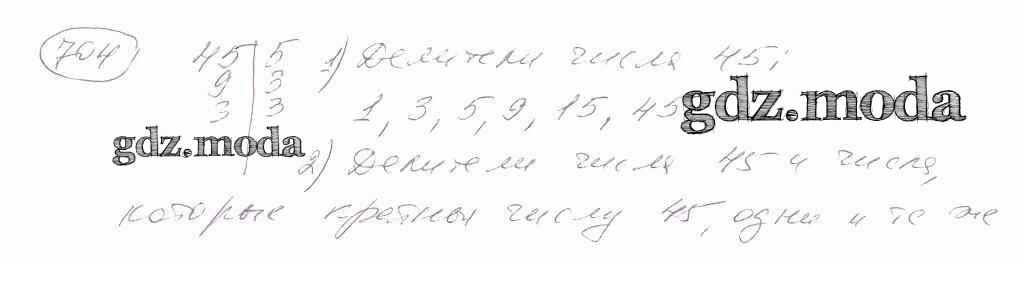 704 45 | 5 1) Делители числа 45:
9 | 3
3 | 3 1, 3, 5, 9, 15, 45
gdz.moda
gdz.moda
2) Делители числа 45 и числа,
которые кратны числу 45, одни и те же